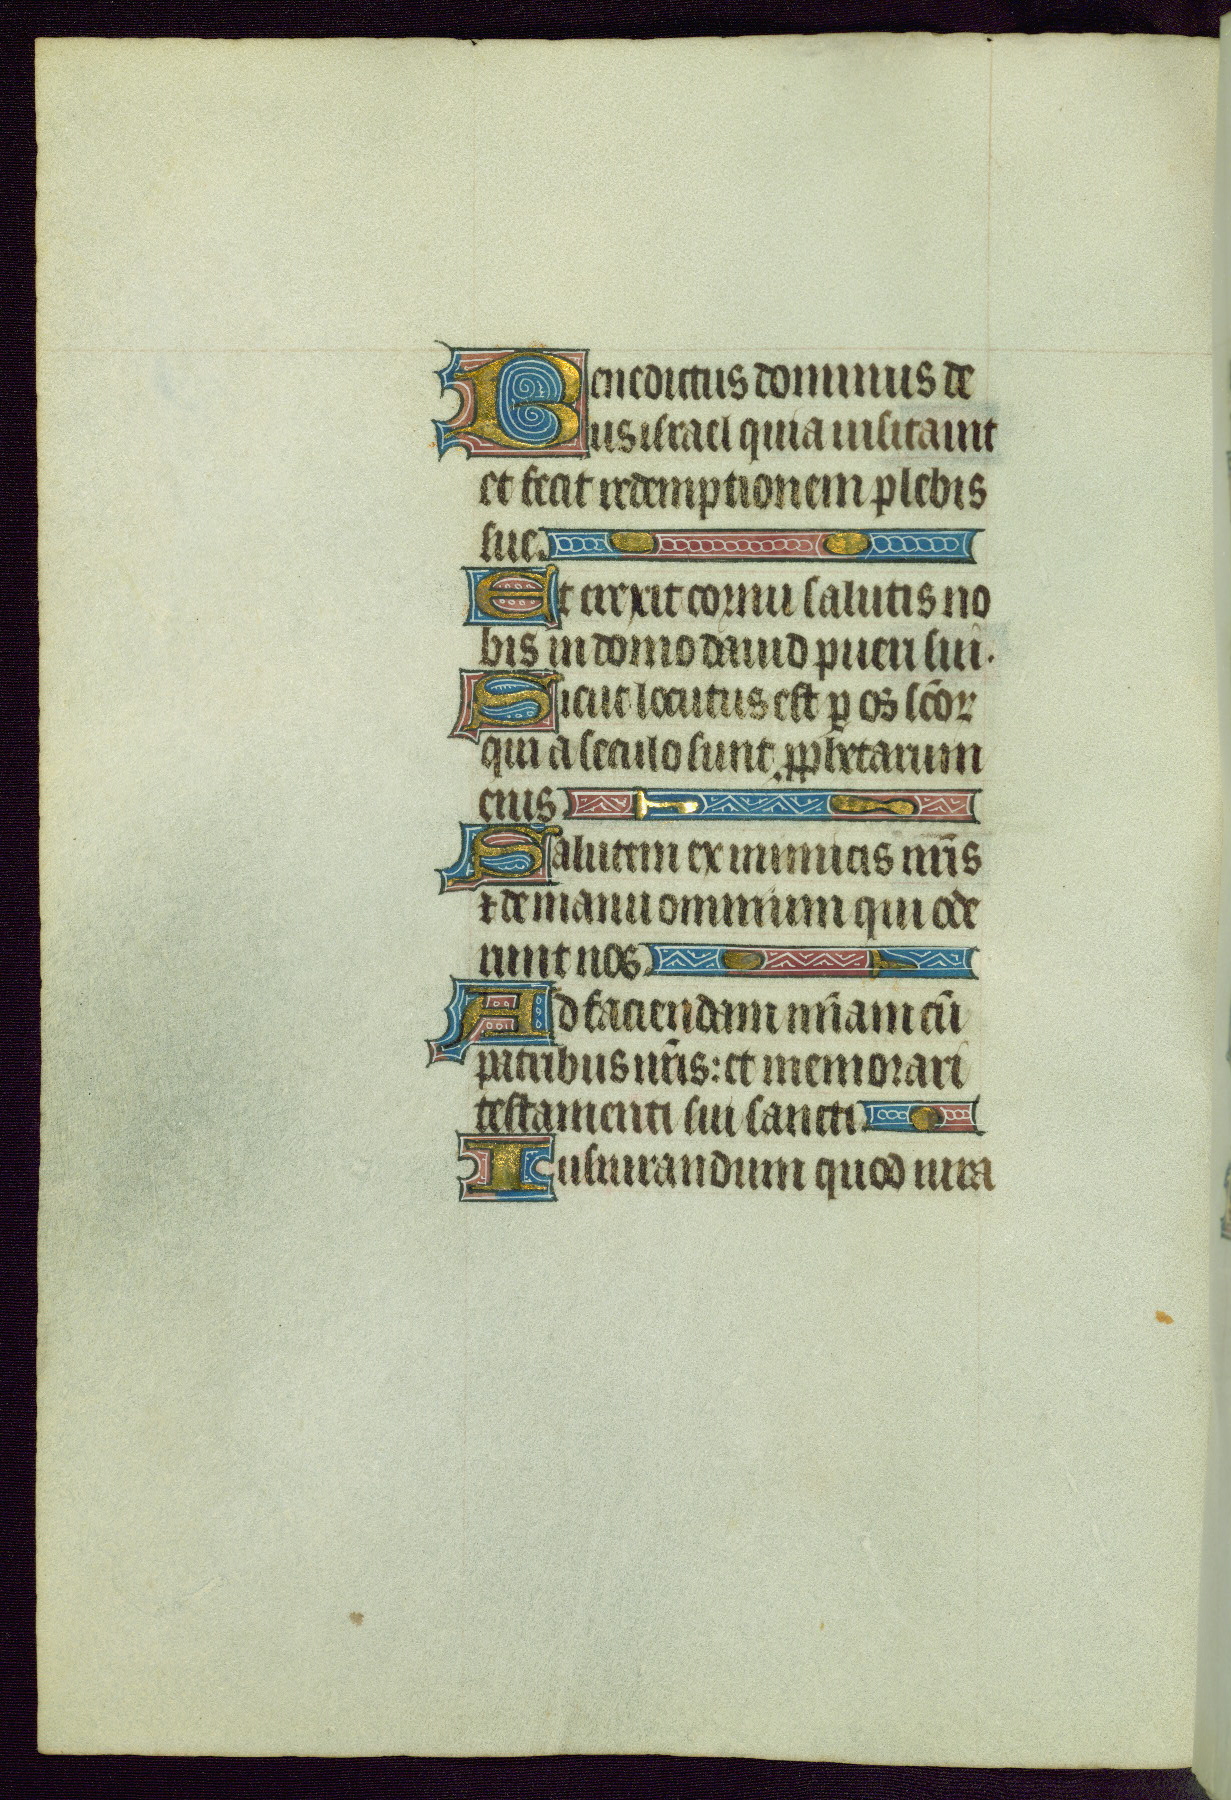 Benedictus dominus de
us israel quia uisitauit
et fecit redemptionem plebis
sue.
Et erexit cornu salutis no
bis in domo dauid pueri sui.
Sicut locutus est ꝑ os sc̄oꝝ
qui a seculo sunt ꝓphetarum
eius
Salutem ex inimicis nr̄is
⁊ de manu omnium qui ode
runt nos
Ad faciendam mīam cū
patribus nr̄is: et memorari
testamenti sui sancti
Iusiurandum quod iura